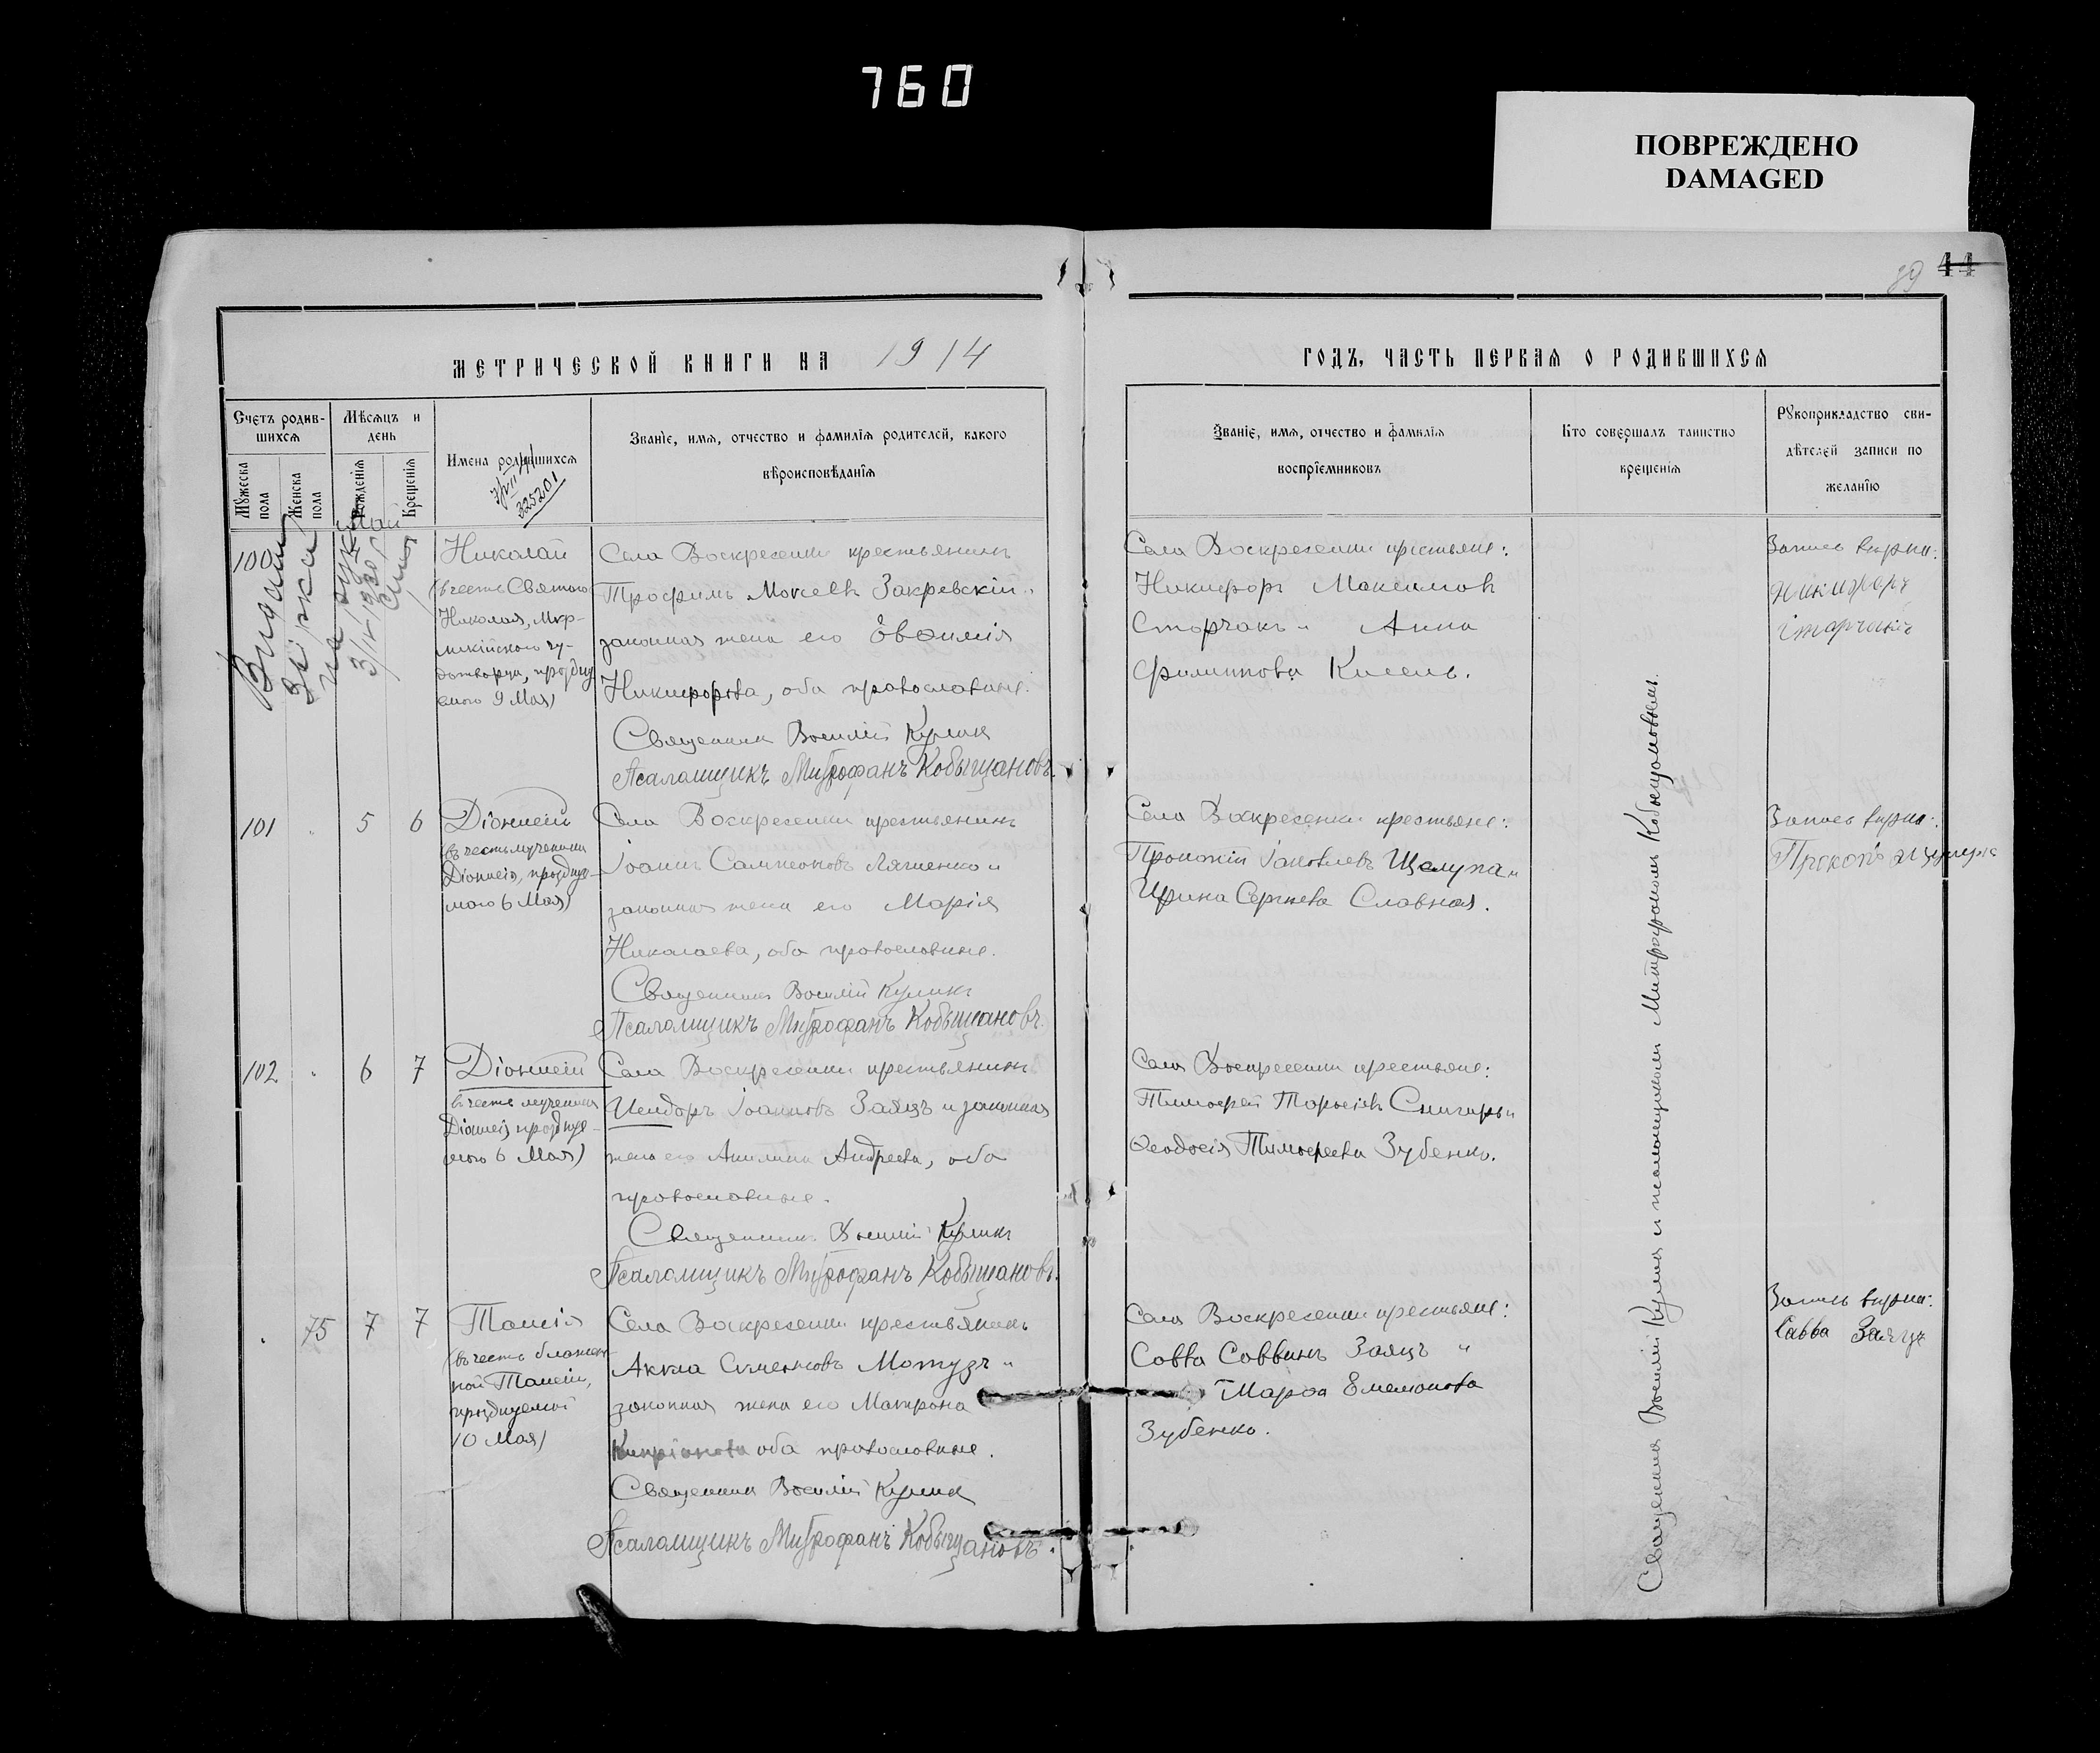 760
ПОВРЕЖДЕНО
DAMAGED
89 44
МЕТРИЧЕСКОЙ КНИГИ НА 1914
ГОДЪ, ЧАСТЬ ПЕРВАЯ О РОДИВШИХСЯ
Счетъ родив-
шихся
Мѣсяцъ и
день
Мужеска
пола
Женска
пола
Рожденія
Крещенія
Имена родившихся
325201
Званіе, имя, отчество и фамилія родителей, какого
вѣроисповѣданія
Званіе, имя, отчество и фамилія
воспріемниковъ
Кто совершалъ таинство
крещенія
Рукоприкладство сви-
дѣтелей записи по
желанію
Май
100
Николай
(въ честь Святого
Николая, Мир-
ликійскаго чу-
дотворца, празднуе
маго 9 Мая)
Села Воскресенки крестьянинъ
Трофимъ Моисеевъ Закревскій и
законная жена его Евфимія
Никифорова, оба православные.
Священникъ Василій Куликъ
Псаломщикъ Митрофанъ Кобыщановъ.
Села Воскресенки крестьяне:
Никифоръ Максимовъ
Сторчакъ и Анна
Филиппова Кисель.
Запись вѣрна:
Никифоръ
101 5 6
Діонисій
(въ честь мученика
Діонисія, праздну-
маго 6 Мая)
Села Воскресенки крестьянинъ
Іоаннъ Сампсоновъ Ляшенко и
законная жена его Марія
Николаева, оба православные.
Священникъ Василій Куликъ
Псаломщикъ Митрофанъ Кобыщановъ.
Села Воскресенки крестьяне:
Прокопій Іаковлевъ Щелупа и
Ирина Сергѣева Славная.
Запись вѣрна:
102 6 7
Діонисій
въ честь мученика
Діонисія празднуе-
маго 6 Мая)
Села Воскресенки крестьянинъ
Исидоръ Іоанновъ Заяцъ и законная
жена его Акилина Андреева, оба
православные.
Священникъ Василій Куликъ
Псаломщикъ Митрофанъ Кобыщановъ.
Села Воскресенки крестьяне:
Тимофей Тарасіевъ Снигирь и
Феодосія Тимофеева Зубенко.
75 7 7
Таисія
(въ честь блажен-
ной Таисіи,
празднуемой
10 Мая)
Села Воскресенки крестьянинъ
Акила Симеоновъ Мотузъ и
законная жена его Матрона
Кипріанова оба православные.
Священникъ Василій Куликъ
Псаломщикъ Митрофанъ Кобыщановъ.
Села Воскресенки крестьяне:
Савва Саввинъ Заяцъ и
Марфа Емеліанова
Зубенко.
Запись вѣрна:
Савва Заяцъ
Священникъ Василій Куликъ и псаломщикомъ Митрофаномъ Кобыщановымъ.